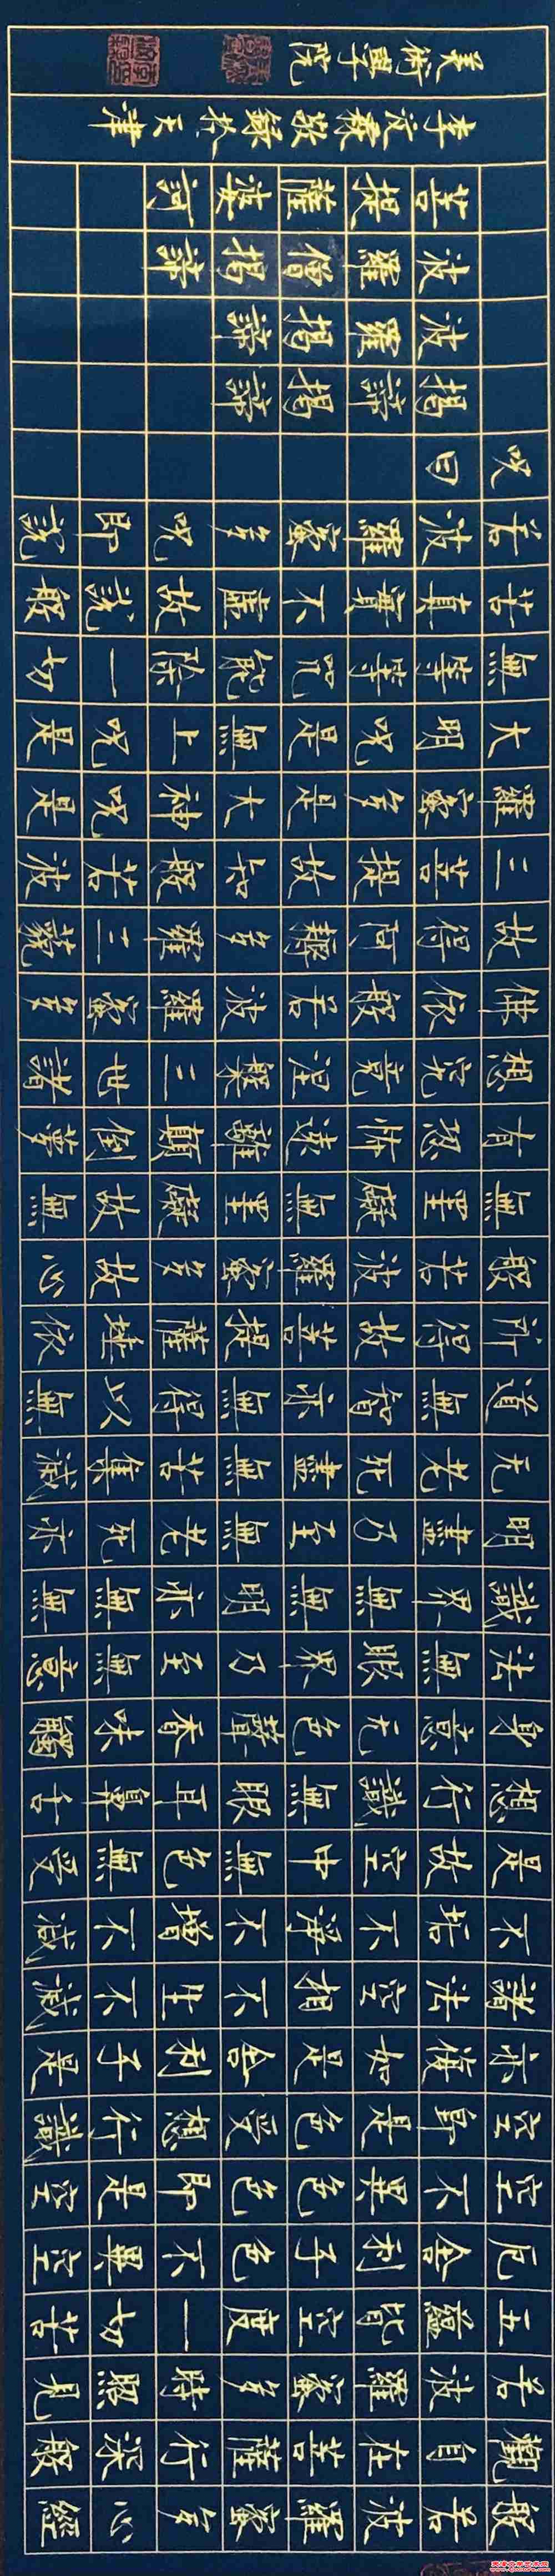 般若波羅蜜多心經
觀自在菩薩行深般
若波羅蜜多時照見
五蘊皆空度一切苦
厄舍利子色不異空
空不異色色即是空
空即是色受想行識
亦復如是舍利子是
諸法空相不生不滅
不垢不淨不增不減
是故空中無色無受
想行識無眼耳鼻舌
身意无色聲香味觸
法無眼界乃至無意
識界無無明亦無無
明盡乃至無老死亦
无老死盡無苦集滅
道無智亦無得以無
所得故菩提薩埵依
般若波羅蜜多故心
無罣礙無罣礙故無
有恐怖遠離顛倒夢
想究竟涅槃三世諸
佛依般若波羅蜜多
故得阿耨多羅三藐
三菩提故知般若波
羅蜜多是大神咒是
大明咒是無上咒是
無等等咒能除一切
苦真實不虛故說般
若波羅蜜多咒即說
咒曰
揭諦揭諦
波羅揭諦
波羅僧揭諦
菩提薩婆訶
李敬錄於天津
美術學院